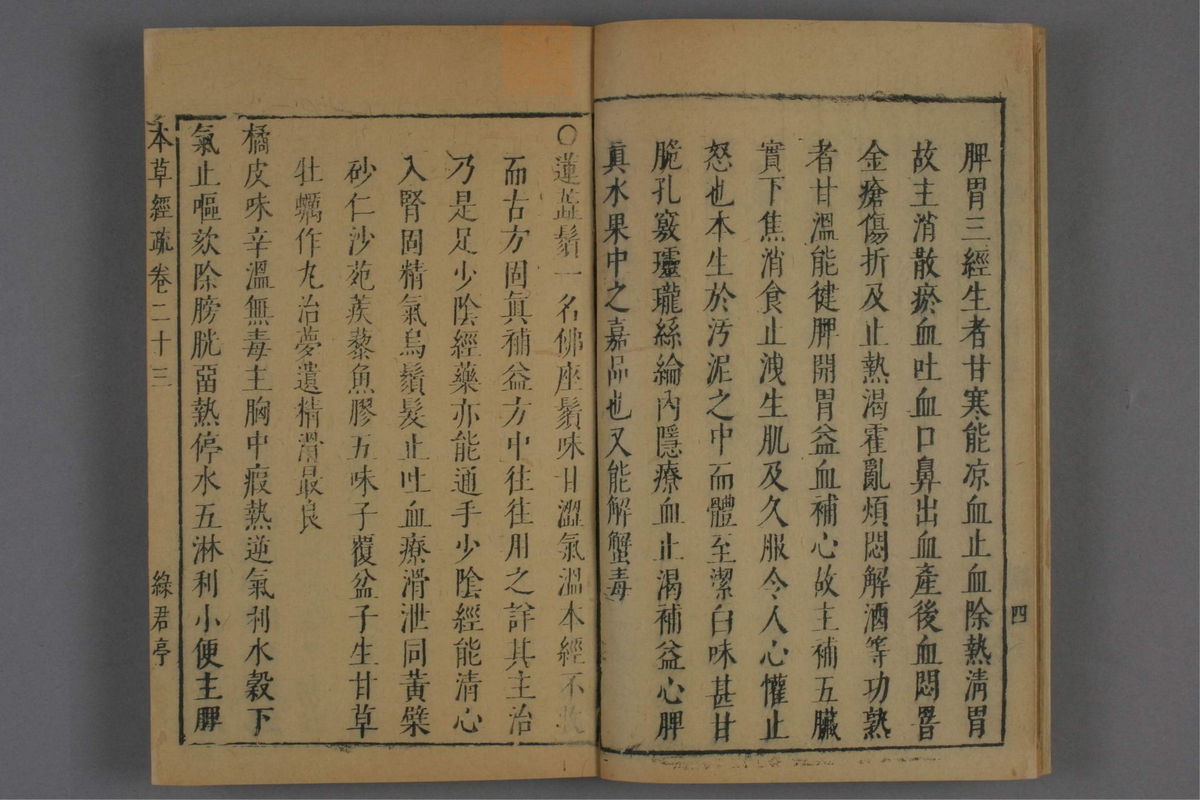 脾胃三經生者甘寒能凉血止血除熱淸胃
故主消散瘀血吐血口鼻出血產後血悶罯
金瘡傷折及止熱渴霍亂煩悶解酒等功熟
者甘溫能健脾開胃益血補心故主補五臟
實下焦消食止洩生肌及久服令人心懽止
怒也本生於汚泥之中而體至潔白味甚甘
脆孔竅瓏絲綸內隱療血止渴補益心脾
眞水果中之嘉品也又能解蟹毒
四
○蓮蘂鬚一名佛座鬚味甘澀氣溫本經不收
而古方固眞補益方中往往用之詳其主治
乃是足少陰經藥亦能通手少陰經能清心
入腎固精氣烏鬚髮止吐血療滑泄同黃檗
砂仁沙苑蒺藜魚膠五味子覆盆子生甘草
牡蠣作丸治夢遺精滑最良
橘皮味辛溫無毒主胸中瘕熱逆氣利水穀下
氣止嘔欬除膀胱畱熱停水五淋利小便主脾
本草經疏卷二十三
綠君亭